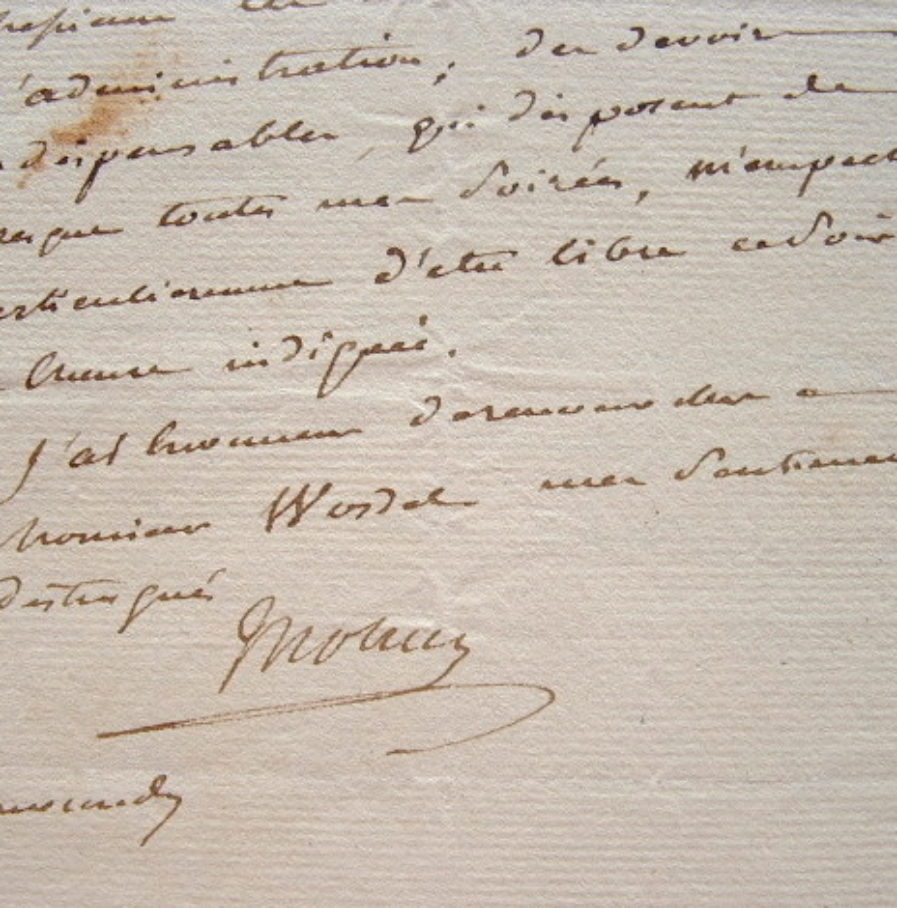 l'administration, des devoirs
indispensables, qui disposent de
presque toutes mes soirées, m'empech
particulierement d'etre libre ce Soir
heure indiquée.
J'ai l'honneur de renouveler a
Monsieur mes Sentimen
distingués